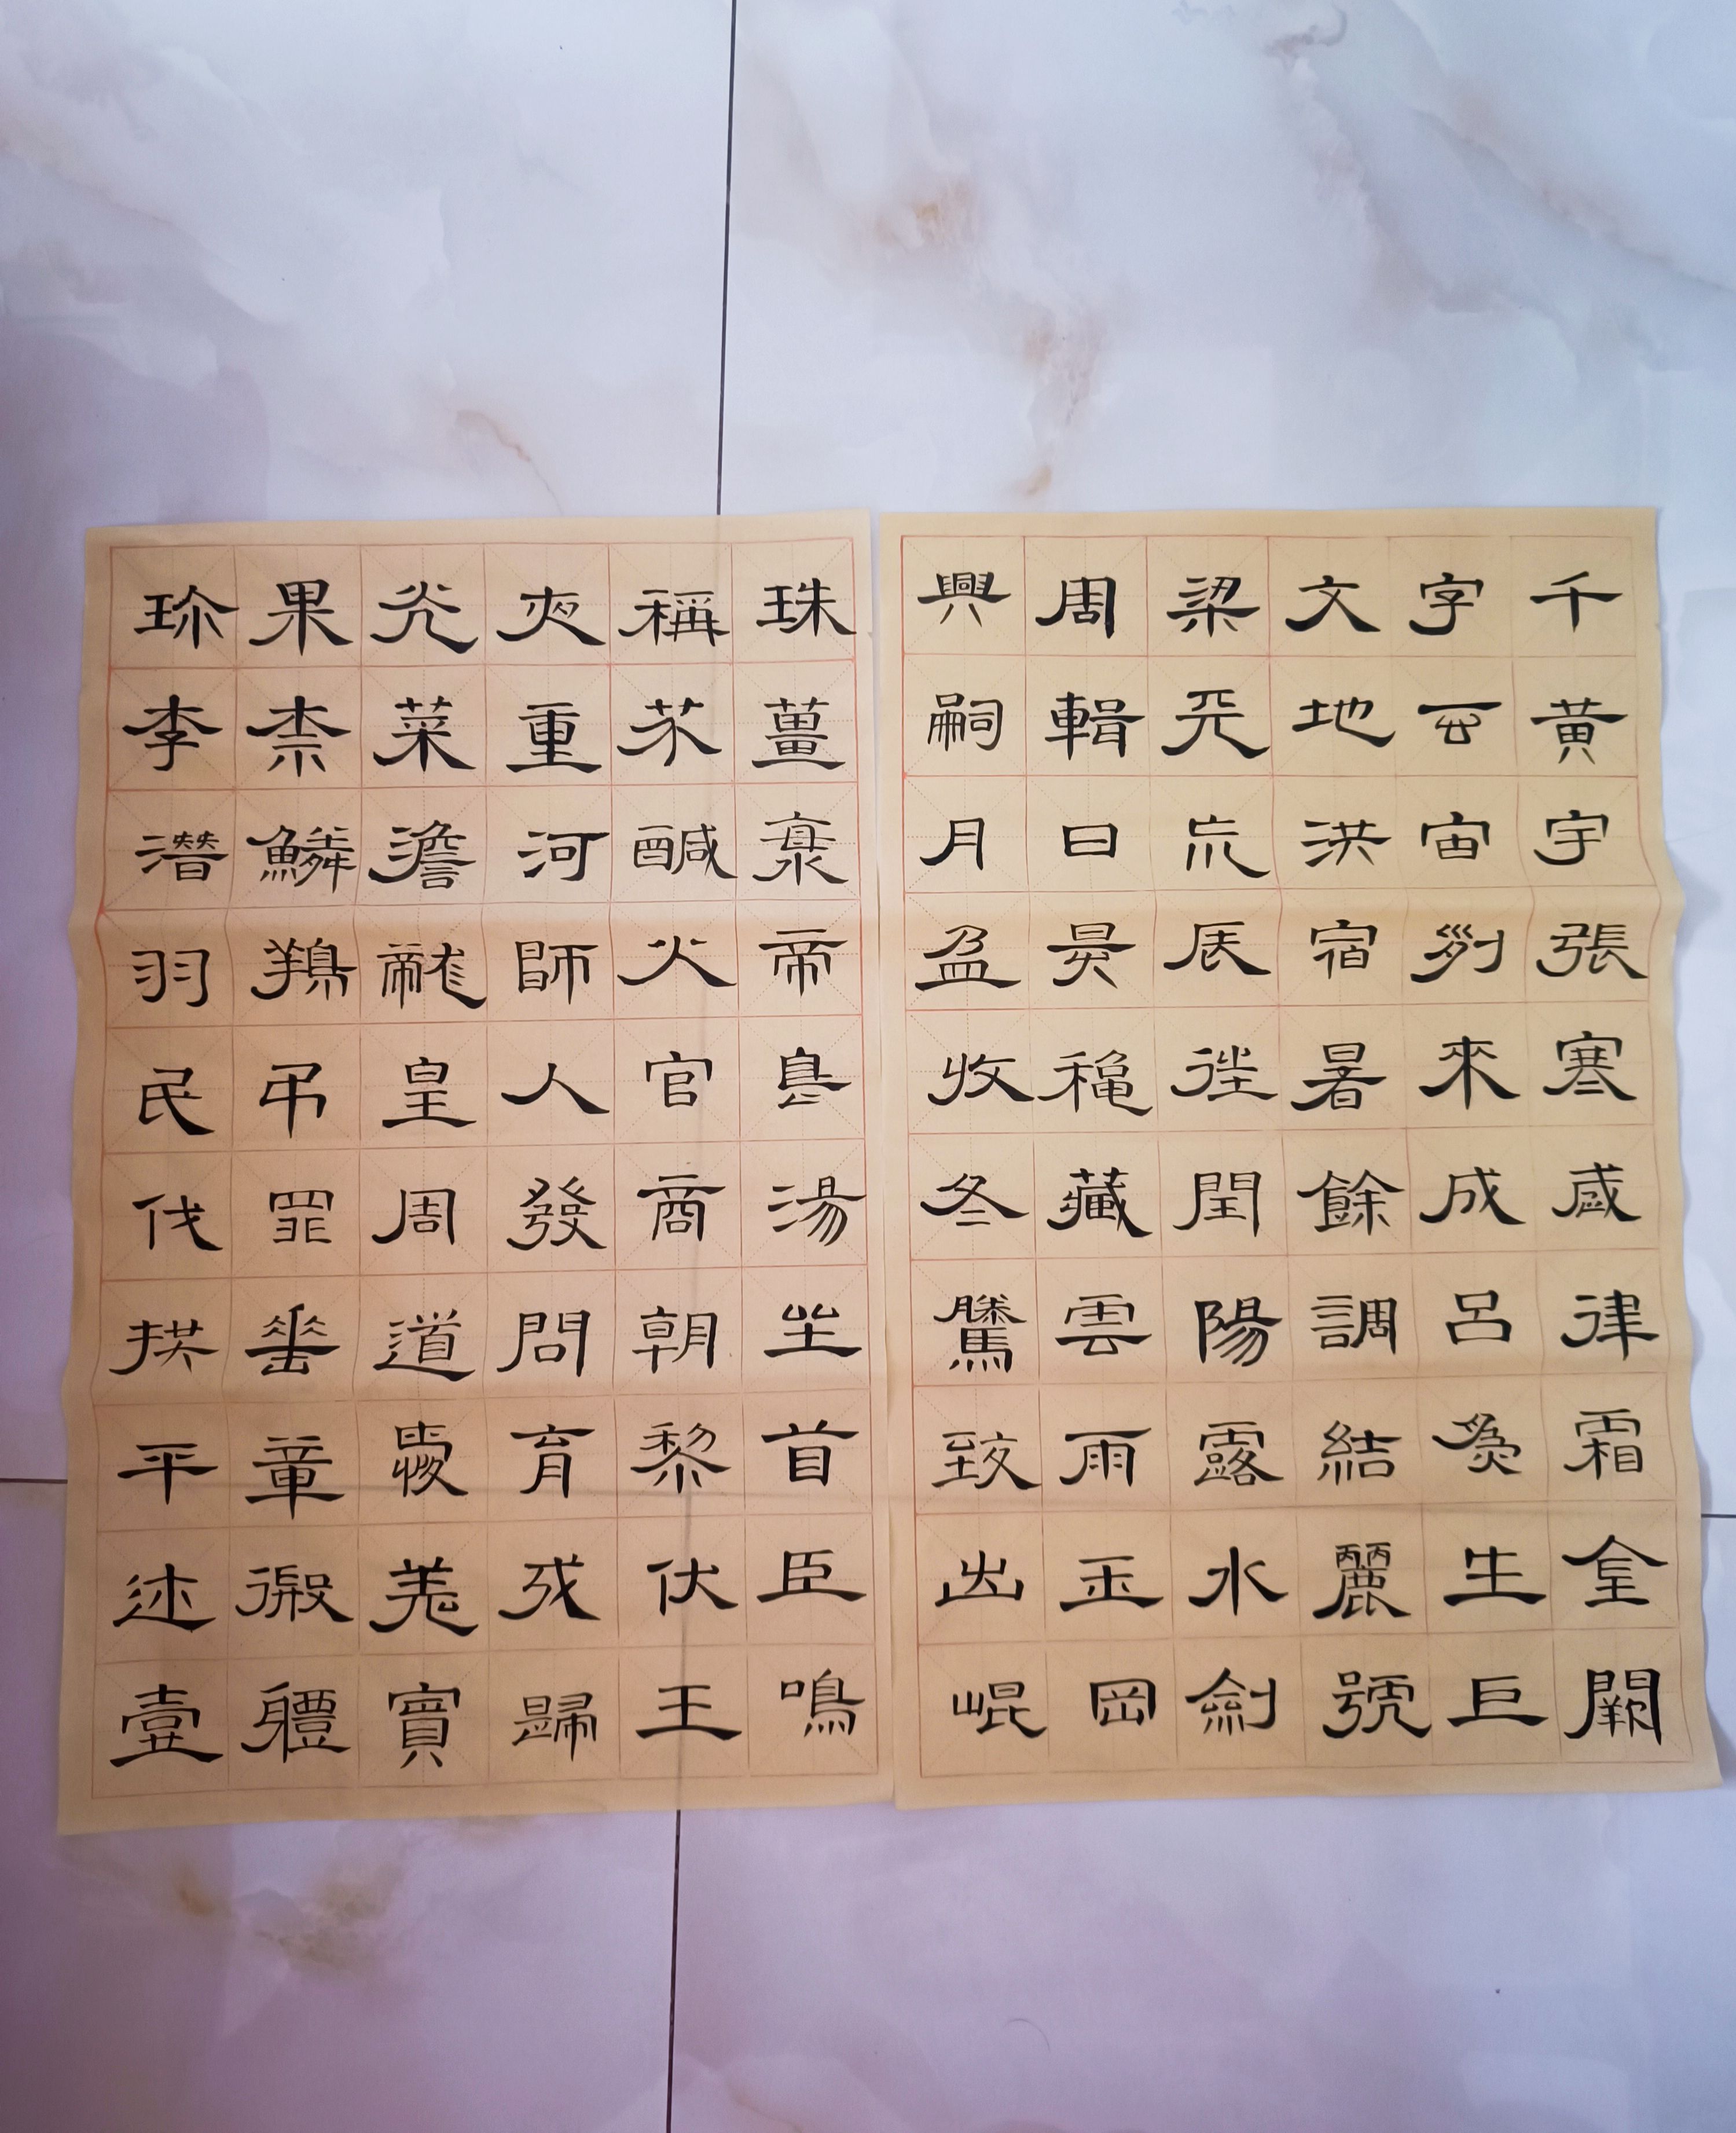 千字文梁周興
嗣輯天地玄黃
宇宙洪荒日月
盈昃辰宿列張
寒來暑往穐收
冬藏閏餘成歲
律呂調陽雲騰
致雨露結為霜
金生麗水玉出
崐岡劍號巨闕
珠稱夜光果珎
李柰菜重芥薑
海鹹河澹鱗潛
羽翔龍師火帝
鳥官人皇弔民
伐罪周發商湯
坐朝問道垂拱
平章愛育黎首
臣伏戎羌徦迩
壹軆賓歸王鳴